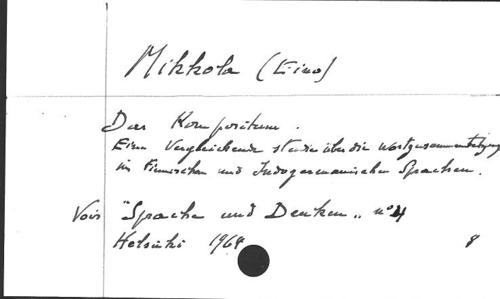 Mikkola (Eino)
Das Kompositum.
Eine Vergleichende studie über die wortzusammensetzung
im Finnischen und Indogermanischen Sprachen.
Voir "Sprache und Denken" n° 4
Helsinki 1964 8